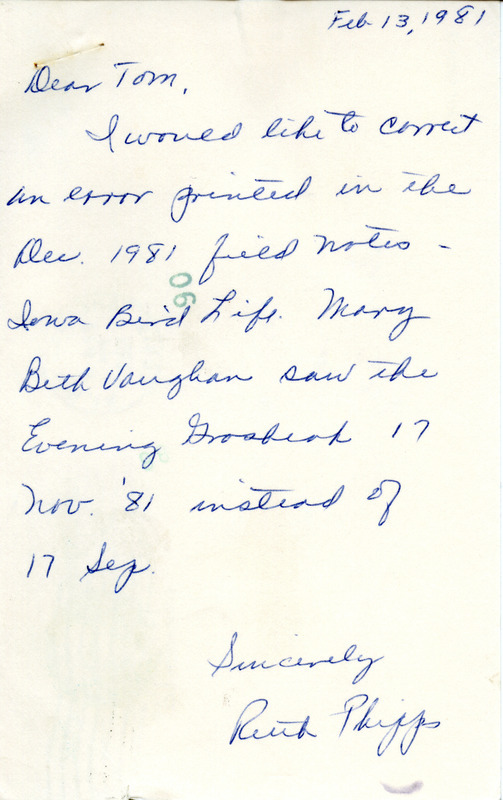 Feb 13, 1981
Dear Tom,
I would like to correct
an error printed in the
Dec. 1981 field notes -
Iowa Bird Life. Mary
Beth Vaughan saw the
Evening Grosbeak 17
Nov. '81 instead of
17 Sep.
Sincerely
Ruth Phipps
90